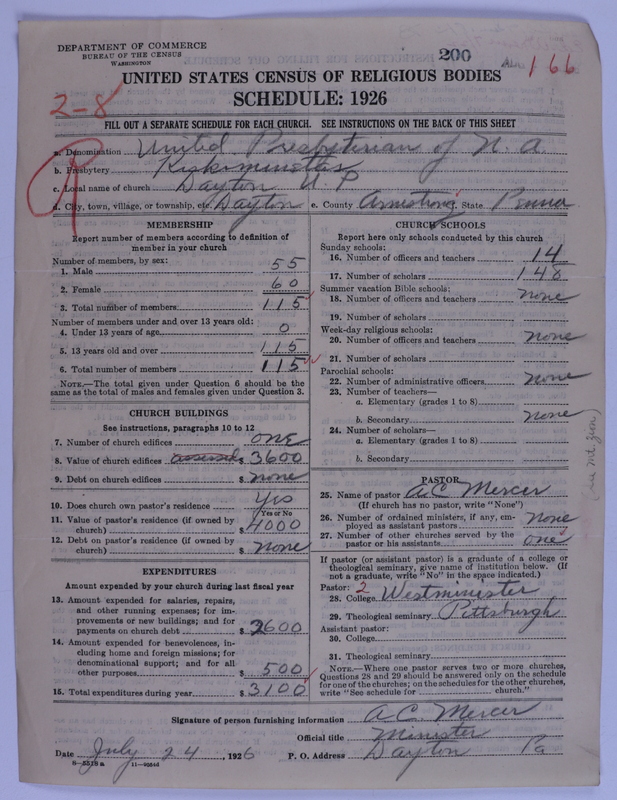 DEPARTMENT OF COMMERCE
BUREAU OF THE CENSUS
WASHINGTON
200
166
UNITED STATES CENSUS OF RELIGIOUS BODIES
SCHEDULE: 1926
2-8
FILL OUT A SEPARATE SCHEDULE FOR EACH CHURCH. SEE INSTRUCTIONS ON THE BACK OF THIS SHEET
R
a. Denomination United Presbyterian of N. A
b. Presbytery Kiskiminetas
c. Local name of church Dayton U. P
d. City, town, village, or township, etc. Dayton e. County Armstrong State Penna
MEMBERSHIP
Report number of members according to definition of
member in your church
Number of members, by sex:
1. Male 55
2. Female 60
3. Total number of members 115
Number of members under and over 13 years old:
4. Under 13 years of age 0
5. 13 years old and over 115
6. Total number of members 115
NOTE.—The total given under Question 6 should be the
same as the total of males and females given under Question 3.
CHURCH BUILDINGS
See instructions, paragraphs 10 to 12
7. Number of church edifices one
8. Value of church edifices assessed $ 3600
9. Debt on church edifices $ none
10. Does church own pastor's residence yes
Yes or No
11. Value of pastor's residence (if owned by
church) $ 4000
12. Debt on pastor's residence (if owned by
church) $ none
EXPENDITURES
Amount expended by your church during last fiscal year
13. Amount expended for salaries, repairs,
and other running expenses; for im-
provements or new buildings; and for
payments on church debt $ 2600
14. Amount expended for benevolences, in-
cluding home and foreign missions; for
denominational support; and for all
other purposes $ 500
15. Total expenditures during year $ 3100
CHURCH SCHOOLS
Report here only schools conducted by this church
Sunday schools:
16. Number of officers and teachers 14
17. Number of scholars 148
Summer vacation Bible schools:
18. Number of officers and teachers none
19. Number of scholars
Week-day religious schools:
20. Number of officers and teachers none
21. Number of scholars
Parochial schools:
22. Number of administrative officers none
23. Number of teachers—
a. Elementary (grades 1 to 8)
b. Secondary none
24. Number of scholars—
a. Elementary (grades 1 to 8)
b. Secondary
PASTOR
25. Name of pastor A. C. Mercer
(If church has no pastor, write "None")
26. Number of ordained ministers, if any, em-
ployed as assistant pastors none
27. Number of other churches served by the
pastor or his assistants one
If pastor (or assistant pastor) is a graduate of a college or
theological seminary, give name of institution below. (If
not a graduate, write "No" in the space indicated.)
Pastor: 2
28. College Westminister
29. Theological seminary Pittsburgh
Assistant pastor:
30. College
31. Theological seminary
NOTE.—Where one pastor serves two or more churches,
Questions 28 and 29 should be answered only on the schedule
for one of the churches; on the schedules for the other churches,
write "See schedule for church."
Signature of person furnishing information A. C. Mercer
Official title Minister
Date July 24, 1926 P. O. Address Dayton Pa